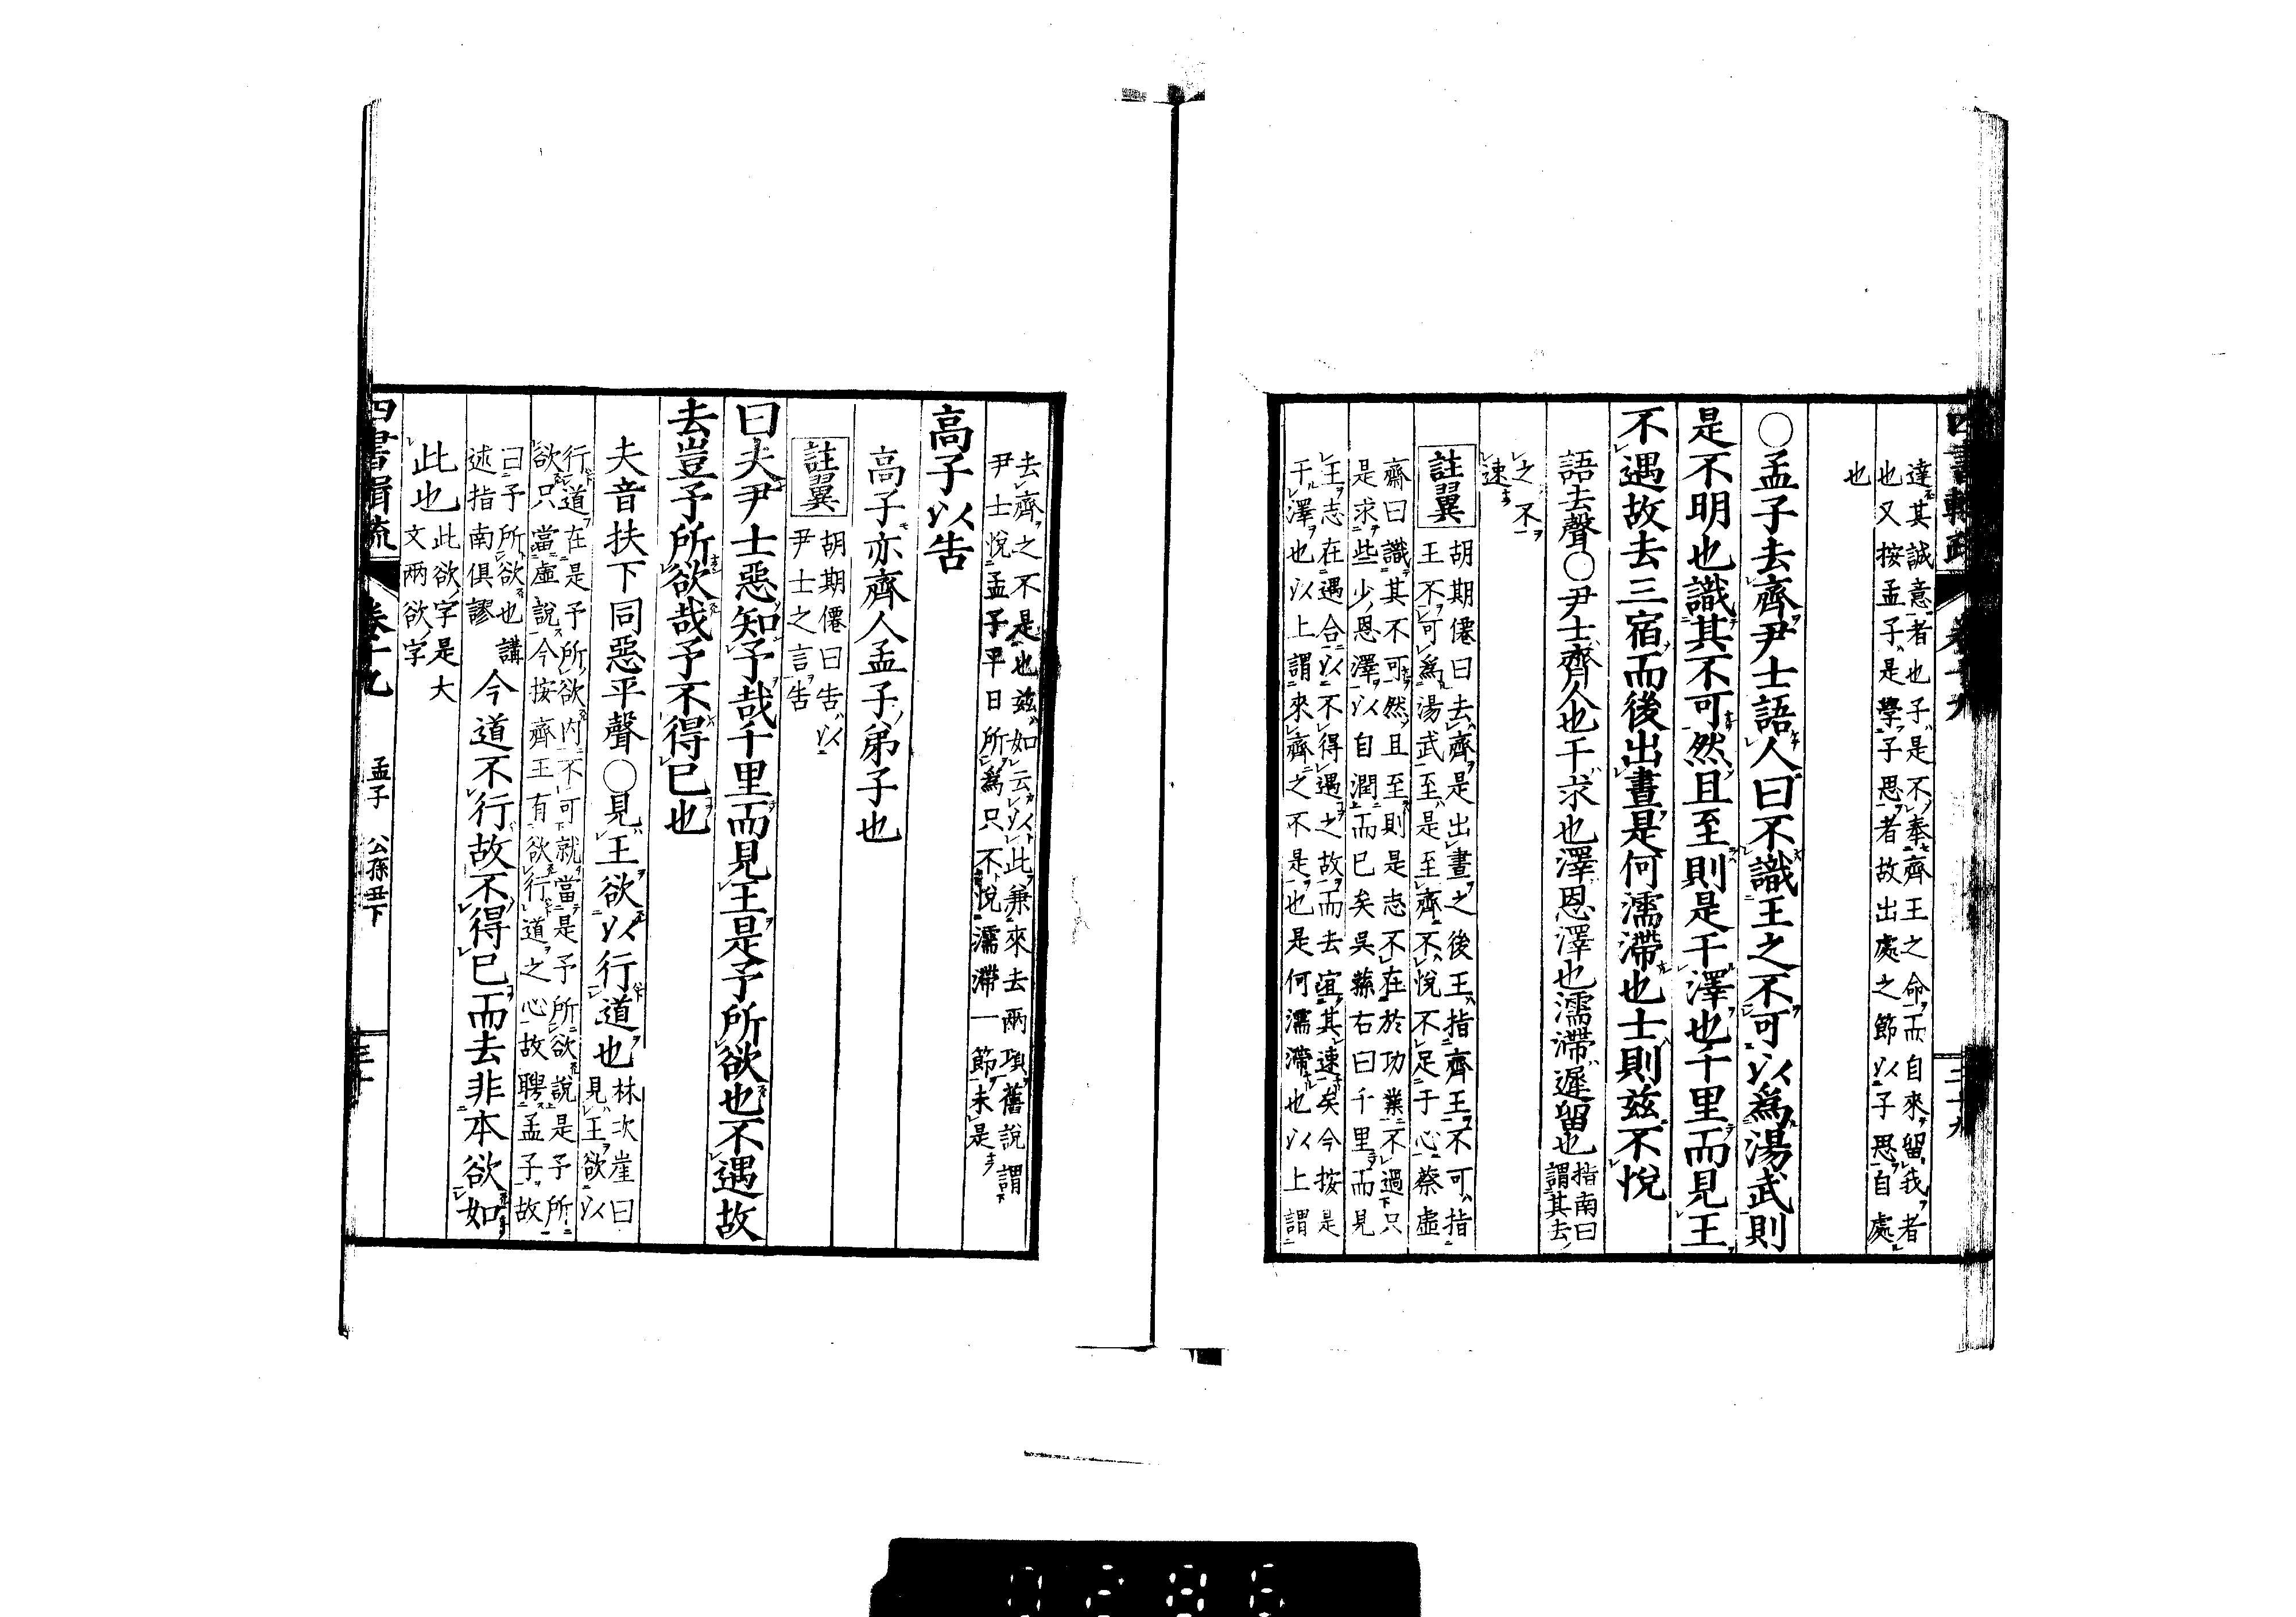 四書輯疏 卷十九 二十九
達其誠意者也子是不奉齊王之命而自來留我者
也又按孟子是學子思者故出處之節以子思自處
也
○孟子去齊尹士語人曰不識王之不可以爲湯武則
是不明也識其不可然且至則是干澤也千里而見王
不遇故去三宿而後出晝是何濡滯也士則茲不悅
語去聲○尹士齊人也干求也澤恩澤也濡滯遲留也
指南曰
謂其去
之不
速
註翼
胡期僊曰去齊是出晝之後王指齊王不可指
王不可爲湯武至是至齊不悅不足于心蔡虛
齋曰識其不可然且至則是志不在於功業不過只
是求些少恩澤以自潤而已矣吳蓀右曰千里而見
王志在遇合以不得遇之故而去宜其速矣今按是
干澤也以上謂來齊之不是也是何濡滯也以上謂
去齊之不是也茲如云以此兼來去兩項舊說謂
尹士悅孟子平日所爲只不悅濡滯一節未是
高子以告
高子亦齊人孟子弟子也
註翼
胡期僊曰告以
尹士之言告
曰夫尹士惡知予哉千里而見王是予所欲也不遇故
去豈予所欲哉予不得已也
夫音扶下同惡平聲○見王欲以行道也
林次崖曰
見王欲以
行道在是予所欲內不可就當是予所欲說是予所
欲只當虛說今按齊王有欲行道之心故聘孟子故
曰予所欲也講
述指南俱謬
今道不行故不得已而去非本欲如
此也
此欲字是大
文兩欲字
四書輯疏 卷十九 孟子 公孫丑下 三十